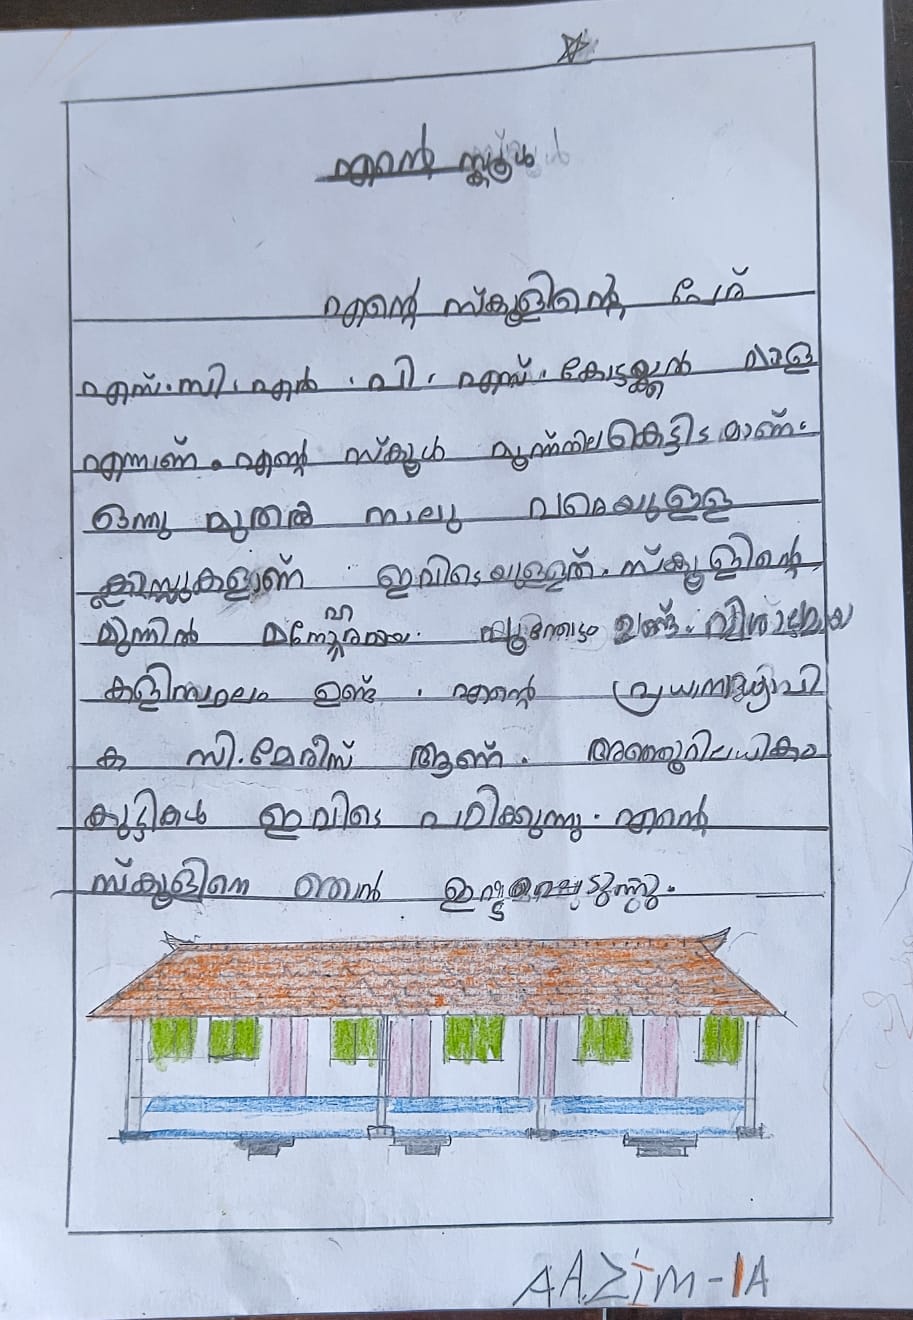 എന്റെ സ്കൂൾ
എന്റെ സ്കൂളിന്റെ പേര്
എസ്.സി.എൽ.വി.എസ്. കോട്ടക്കൽ മാള
എന്നാണ്. എന്റെ സ്കൂൾ മൂന്ന്നില കെട്ടിടമാണ്.
ഒന്നു മുതൽ നാലു വരെയുള്ള
ക്ലാസ്സുകളാണ് ഇവിടെയുള്ളത്. സ്കൂളിന്റെ
മുന്നിൽ മനോഹരമായ പൂന്തോട്ടം ഉണ്ട്. വിശാലമായ
കളിസ്ഥലം ഉണ്ട്. എന്റെ പ്രധാനാദ്ധ്യാപി
ക സി.മേരീസ് ആണ്. അഞ്ഞൂറിലധികം
കുട്ടികൾ ഇവിടെ പഠിക്കുന്നു. എന്റെ
സ്കൂളിനെ ഞാൻ ഇഷ്ടപ്പെടുന്നു.
AAZiM-1A